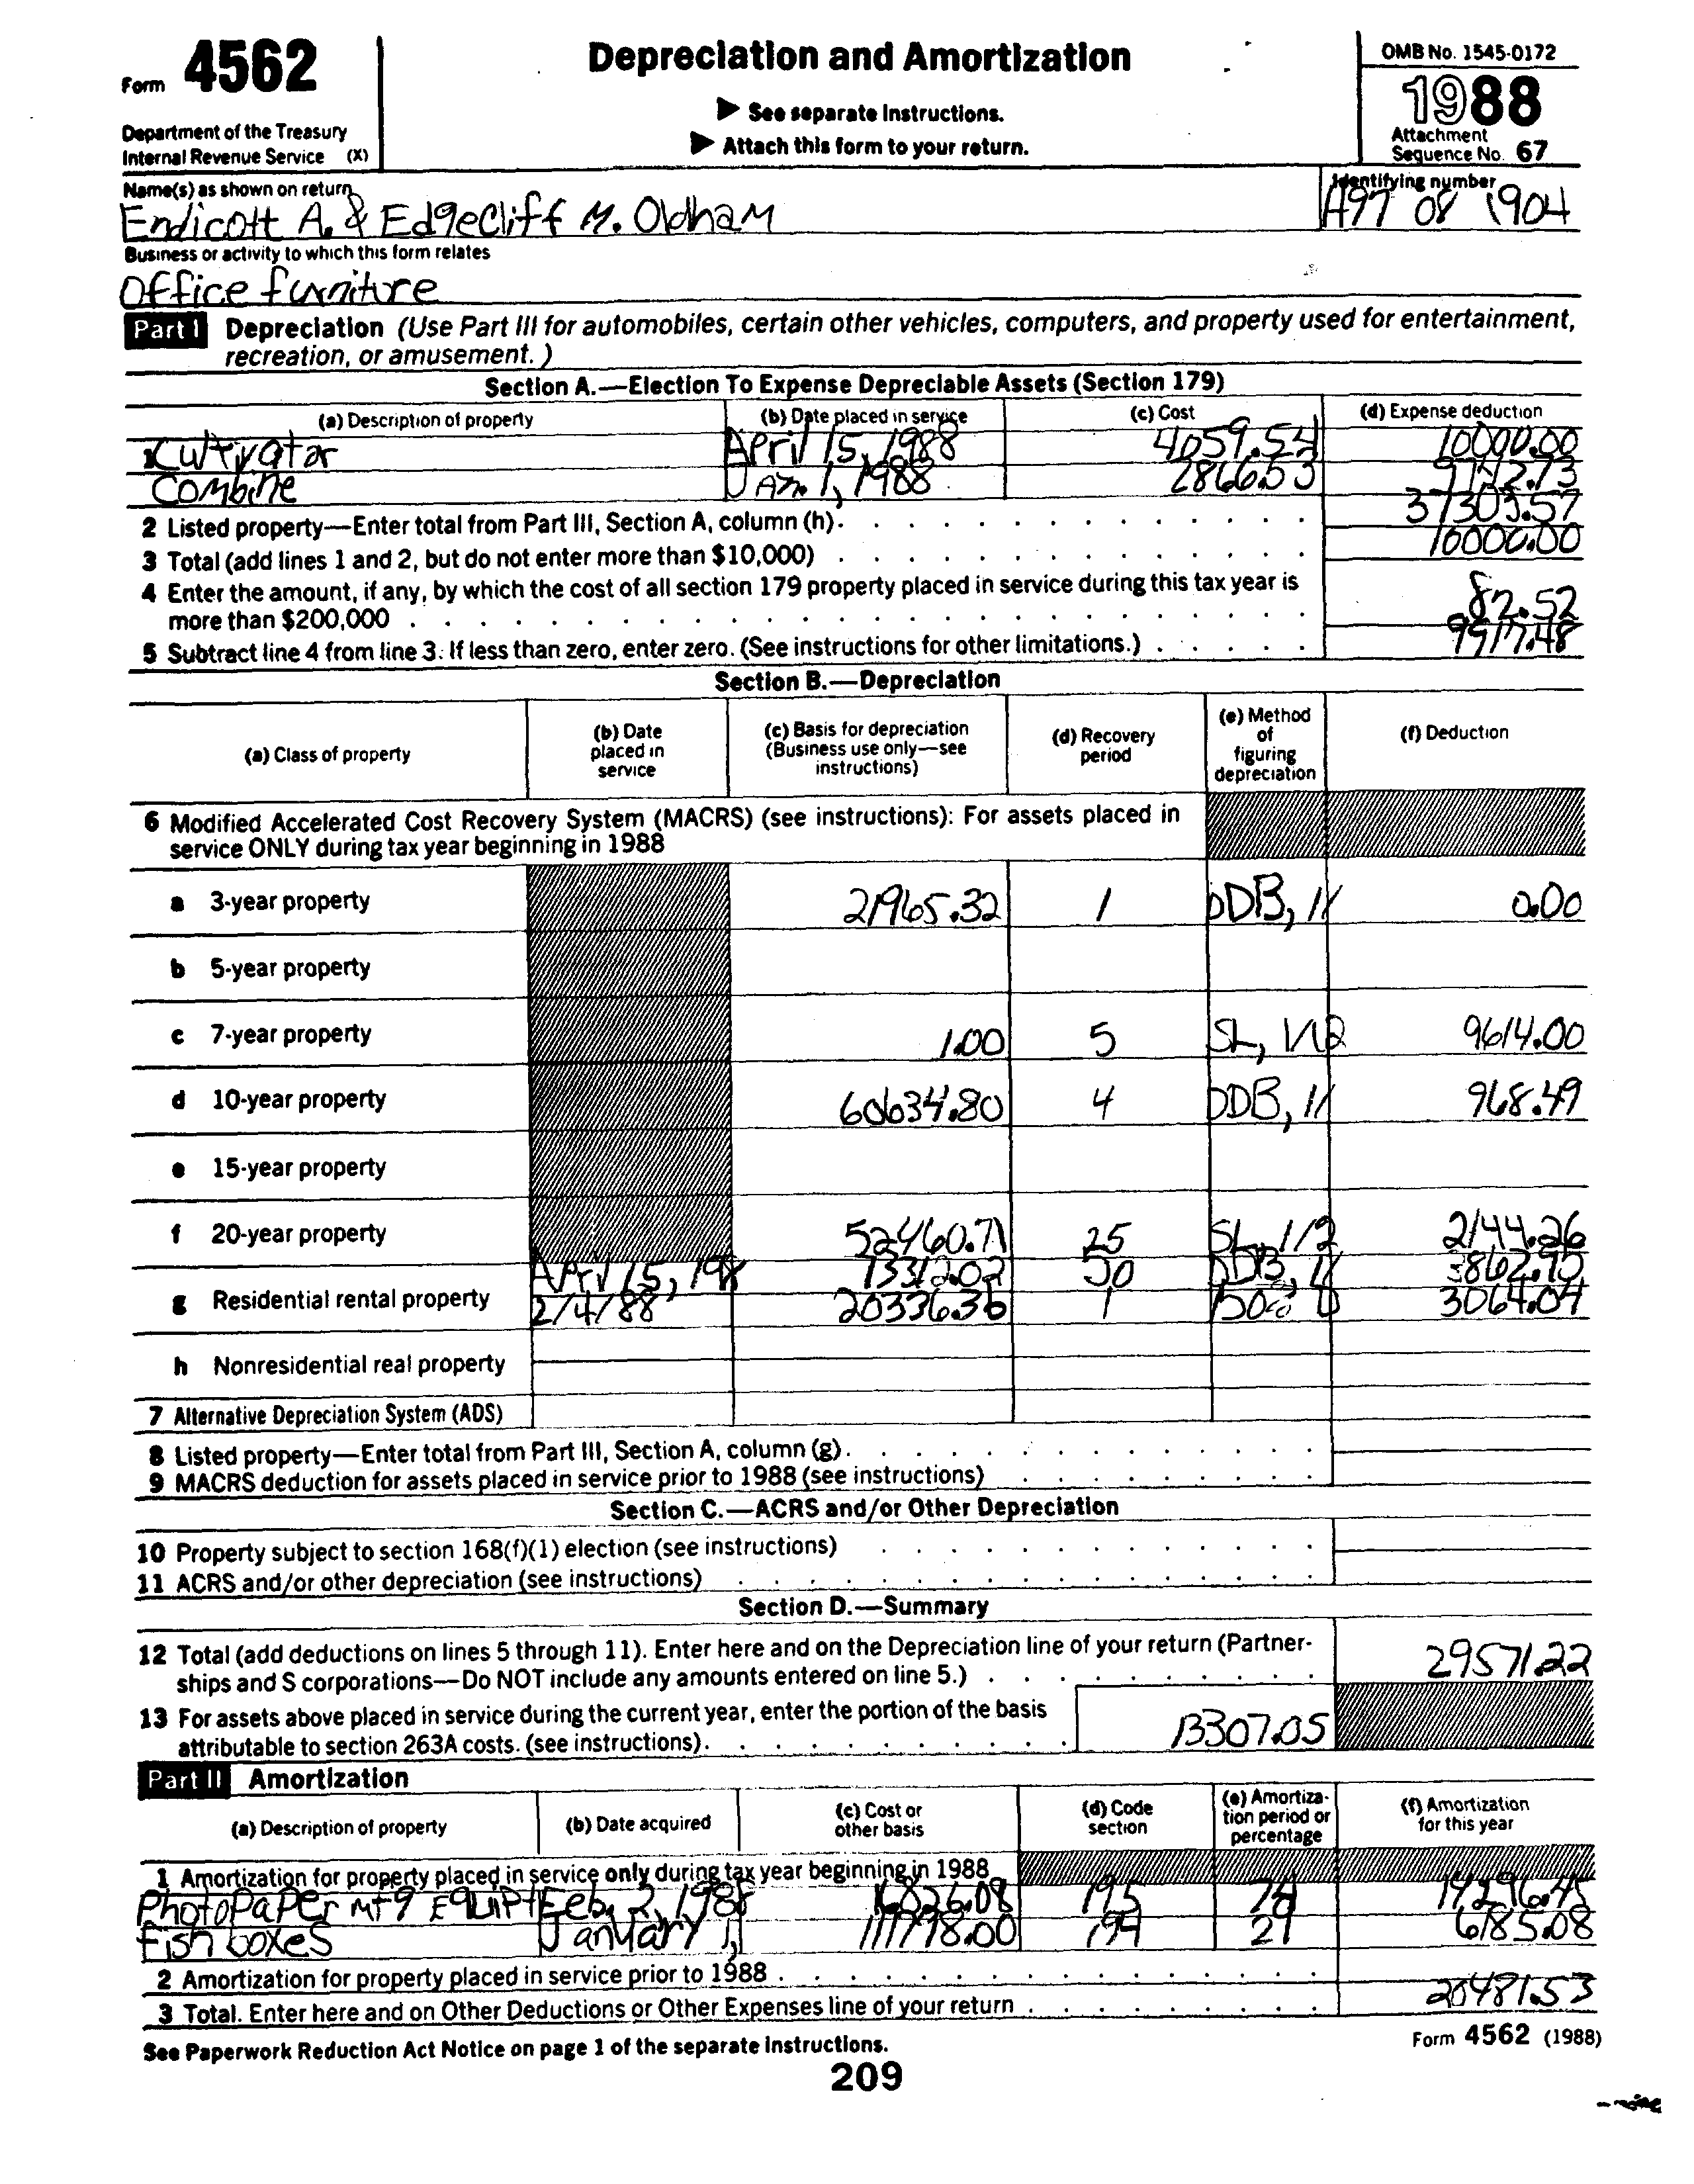 Form 4562
Department of the Treasury
Internal Revenue Service (X)
Depreciation and Amortization
▶ See separate Instructions.
▶ Attach this form to your return.
OMB No. 1545-0172
1988
Attachment
Sequence No. 67
Name(s) as shown on return
Endicott A. & Edgecliff M. Oldham
Identifying number
A97 08 1904
Business or activity to which this form relates
Office furniture
Part I Depreciation (Use Part III for automobiles, certain other vehicles, computers, and property used for entertainment,
recreation, or amusement.)
Section A.—Election To Expense Depreciable Assets (Section 179)
(a) Description of property (b) Date placed in service (c) Cost (d) Expense deduction
1 Cultivator April 15, 1988 4059.54 10000.00
Combine Jan. 1, 1988 2866.53
2 Listed property—Enter total from Part III, Section A, column (h). 37303.57
3 Total (add lines 1 and 2, but do not enter more than $10,000) 10000.00
4 Enter the amount, if any, by which the cost of all section 179 property placed in service during this tax year is
more than $200,000 82.52
5 Subtract line 4 from line 3. If less than zero, enter zero. (See instructions for other limitations.) 9917.48
Section B.—Depreciation
(a) Class of property (b) Date placed in service (c) Basis for depreciation (Business use only—see instructions) (d) Recovery period (e) Method of figuring depreciation (f) Deduction
6 Modified Accelerated Cost Recovery System (MACRS) (see instructions): For assets placed in
service ONLY during tax year beginning in 1988
a 3-year property 21965.32 1 DDB, 0.00
b 5-year property
c 7-year property 1.00 5 SL, 9614.00
d 10-year property 60634.80 4 DDB, 968.49
e 15-year property
f 20-year property 52460.71 25 SL, 1/2 2144.26
April 15, 198 73312.02 50 DDB, 3862.95
g Residential rental property 2/4/88 20336.36 1 3064.04
h Nonresidential real property
7 Alternative Depreciation System (ADS)
8 Listed property—Enter total from Part III, Section A, column (g).
9 MACRS deduction for assets placed in service prior to 1988 (see instructions)
Section C.—ACRS and/or Other Depreciation
10 Property subject to section 168(f)(1) election (see instructions)
11 ACRS and/or other depreciation (see instructions)
Section D.—Summary
12 Total (add deductions on lines 5 through 11). Enter here and on the Depreciation line of your return (Partner-
ships and S corporations—Do NOT include any amounts entered on line 5.) 29571.22
13 For assets above placed in service during the current year, enter the portion of the basis
attributable to section 263A costs. (see instructions). 13307.05
Part II Amortization
(a) Description of property (b) Date acquired (c) Cost or other basis (d) Code section (e) Amortization period or percentage (f) Amortization for this year
1 Amortization for property placed in service only during tax year beginning in 1988
Photopaper Mfg Equipt Feb. 2, 1988 16826.08 195 14296.45
Fish boxes January 1, 111798.00 194 29 6185.08
2 Amortization for property placed in service prior to 1988
3 Total. Enter here and on Other Deductions or Other Expenses line of your return 20481.53
See Paperwork Reduction Act Notice on page 1 of the separate Instructions.
Form 4562 (1988)
209